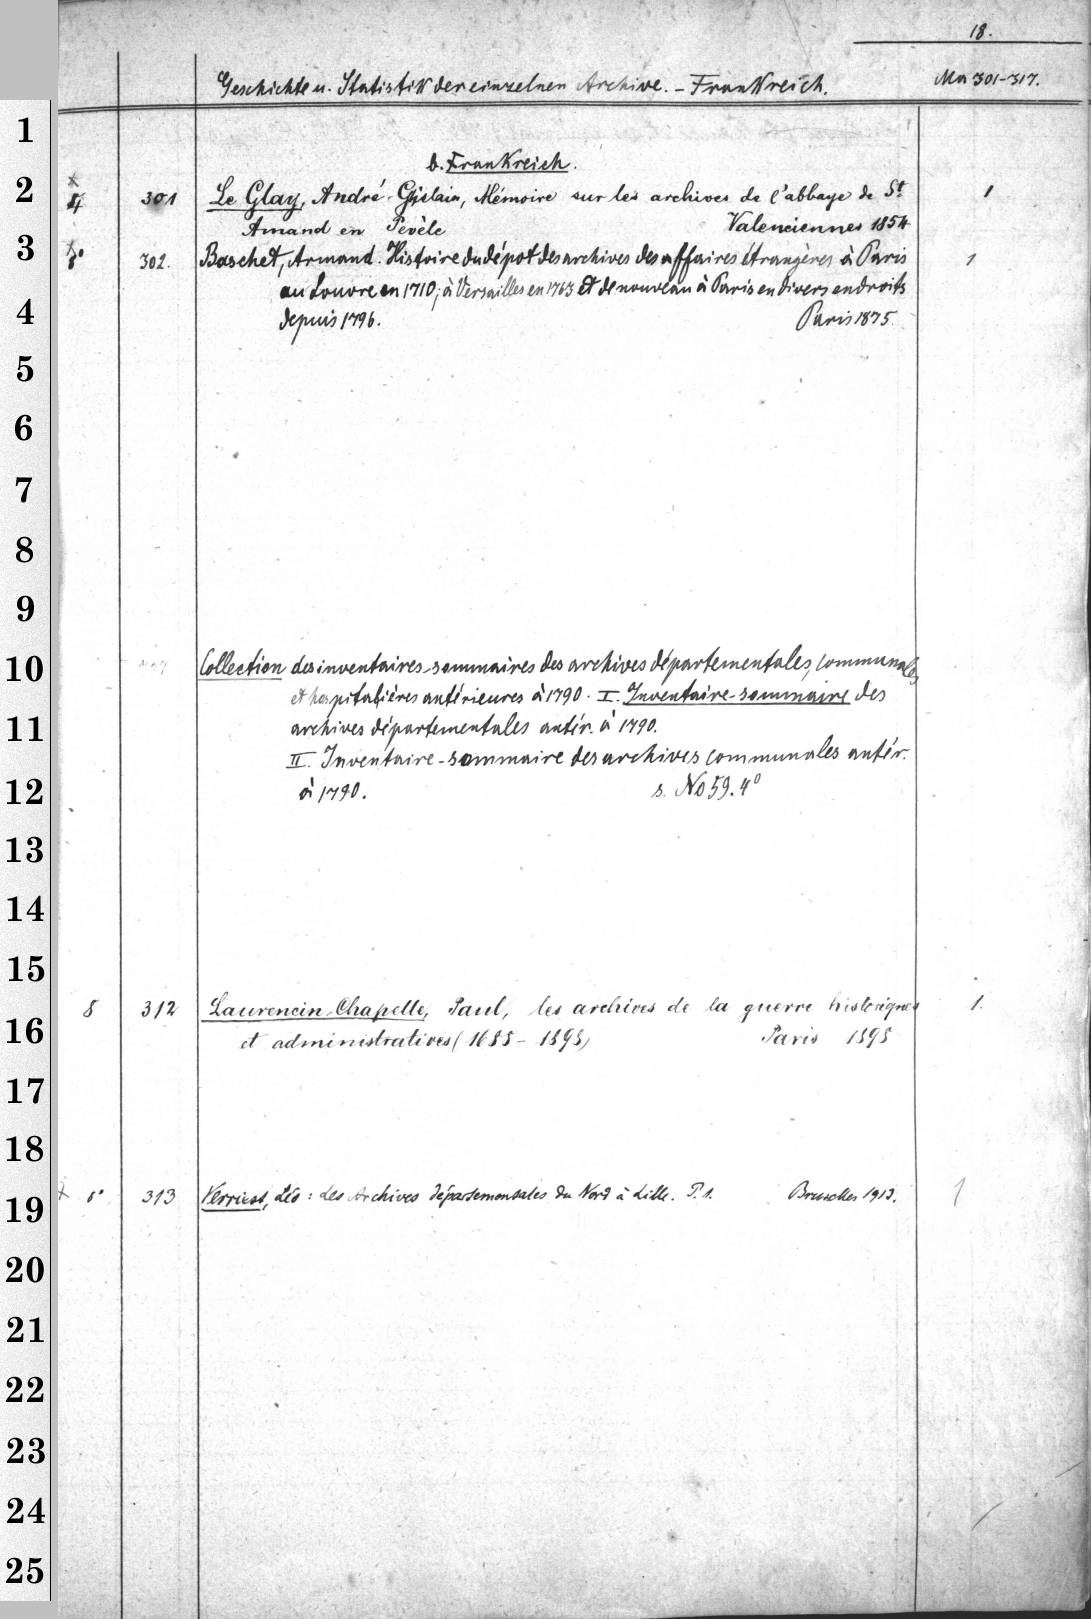 18.
Geschichte u. Statistik der einzelnen Archive. - Frankreich. Ma 301-317.
1
b. Frankreich.
2 x 4 301 Le Glay, André-Ghislain, Mémoire sur les archives de l'abbaye de St 1
Amand en Pevèle Valenciennes 1854
3 8° 302. Baschet, Armand. Histoire du dépôt des archives des affaires étrangères à Paris 1
au Louvre en 1710; à Versailles en 1763 et de nouveau à Paris en divers endroits
4 depuis 1796. Paris 1875.
5
6
7
8
9
10 Collection des inventaires-sommaires des archives départementales, communales
et hospitalières antérieures à 1790. I. Inventaire-sommaire des
11 archives départementales antér. à 1790.
II. Inventaire-sommaire des archives communales antér.
12 à 1790. s. No 59. 4°
13
14
15
8 312 Laurencin-Chapelle, Paul, les archives de la guerre historiques 1.
16 et administratives (1688-1898) Paris 1898
17
18
19 x 8° 313 Verriest, Léo: Les Archives départementales du Nord à Lille. P. 1. Bruxelles 1913. 1
20
21
22
23
24
25